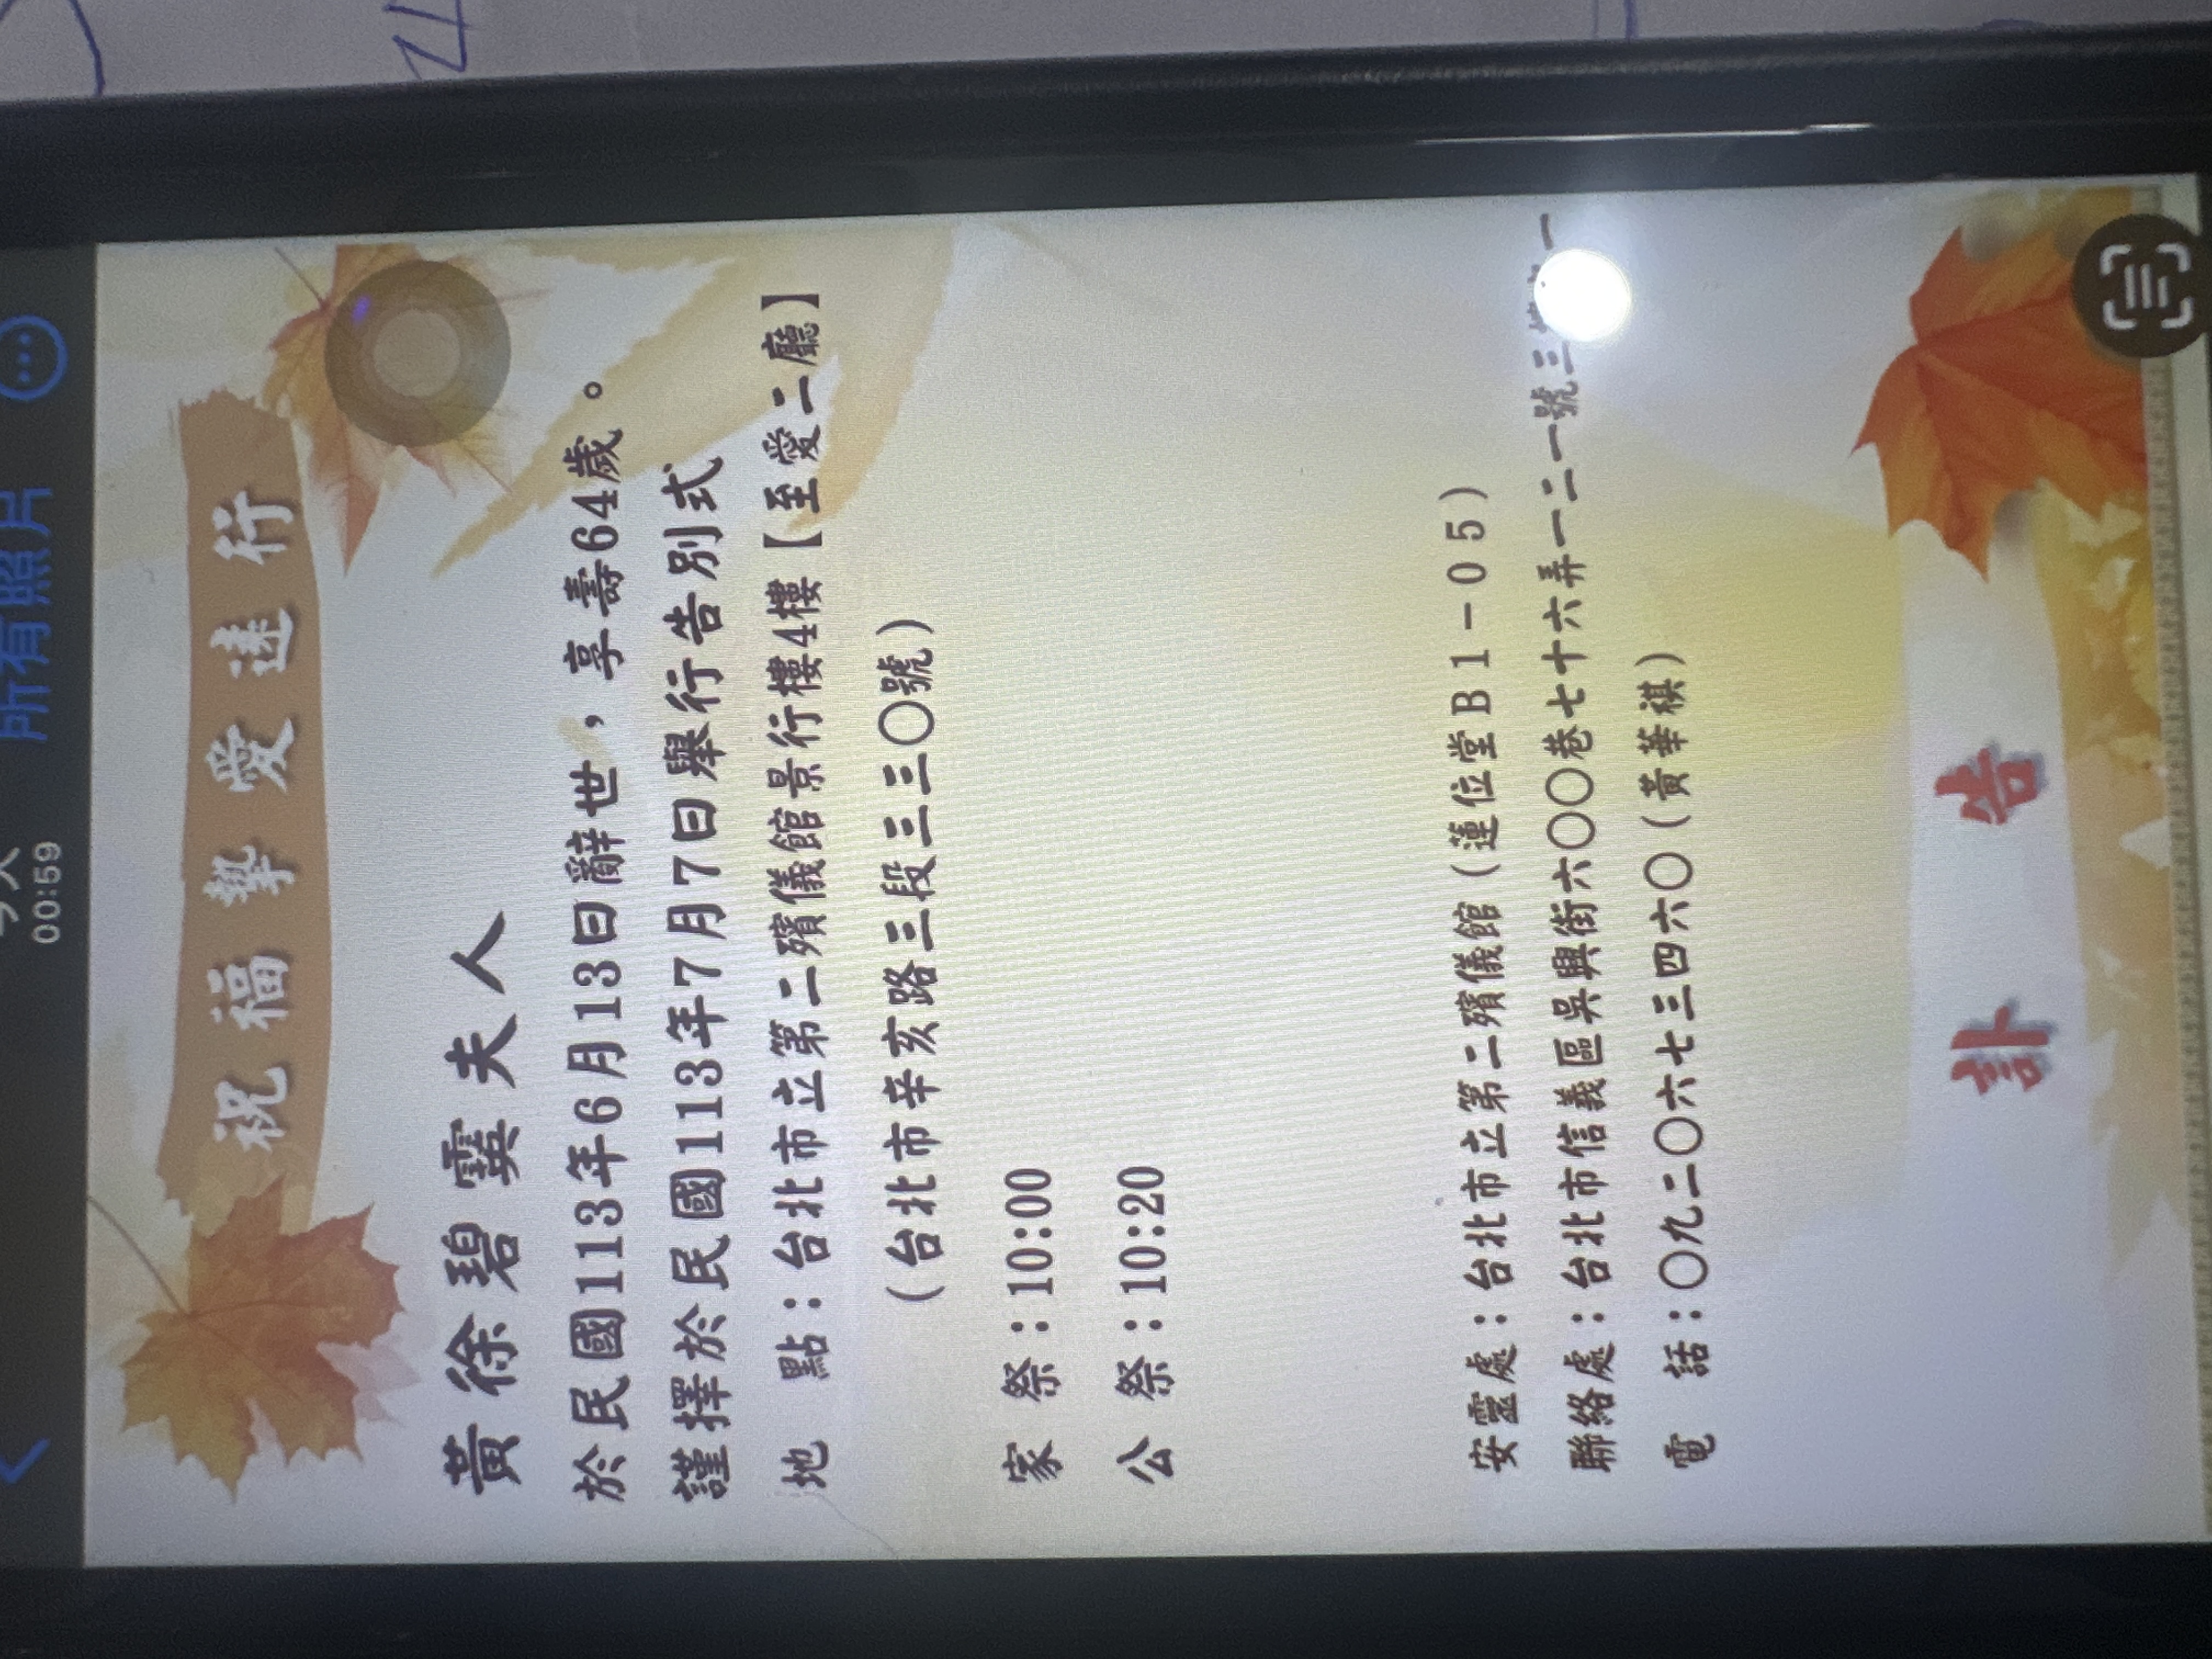 所有照片
00:59
祝福摯愛遠行
黃徐碧霙夫人
於民國113年6月13日辭世，享壽64歲。
謹擇於民國113年7月7日舉行告別式
地 點：台北市立第二殯儀館景行樓4樓【至愛二廳】
（台北市辛亥路三段三三〇號）
家 祭：10:00
公 祭：10:20
安靈處：台北市立第二殯儀館（蓮位堂B1-05）
聯絡處：台北市信義區吳興街六〇〇巷七十六弄一二一號三
電 話：〇九二〇六七三四六〇（黃華祺）
訃告